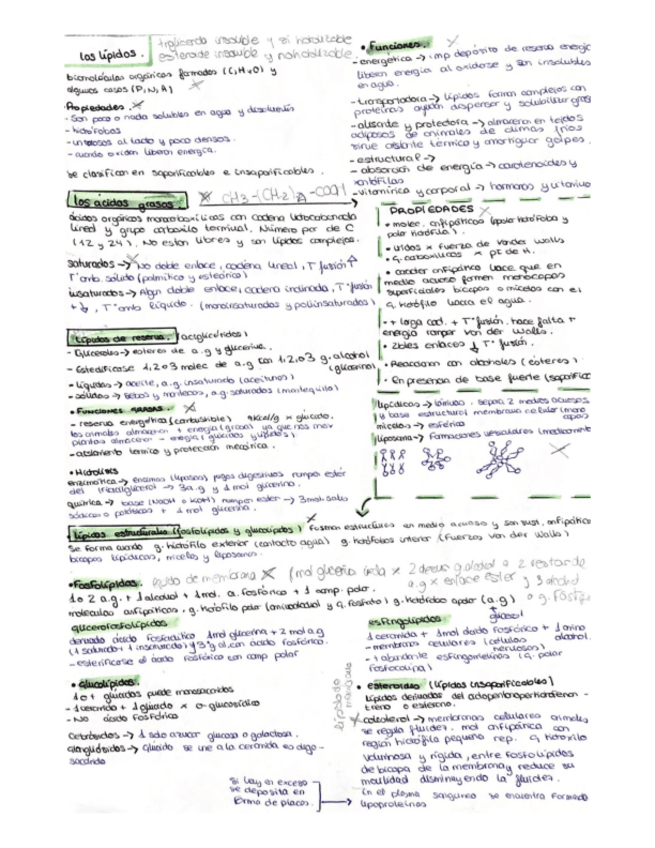 los lípidos.
triglicerido insoluble y si hidrolizable
esteroide insoluble y no hidrolizable
biomoléculas orgánicas formados (C,H,O) y
algunos casos (P,N,A)
• Propiedades.
- Son poco o nada solubles en agua y
- hidrófobos
- untuosos al tacto y poco densos.
- cuando oxidan liberan energía.
se clasifican en saponificables e insaponificables.
• Funciones.
- energética → imp depósito de reserva energic
liberan energía al oxidarse y son insolubles
en agua.
- transportadora → lípidos forman complejos con
proteínas ayudan dispersar y solubilizar
- aislante y protectora → almacena en tejidos
adiposos de animales de climas fríos
sirve aislante térmico y amortiguar golpes.
- estructural →
- absorción de energía → carotenoides y
- vitamínica y corporal → hormonas y
los ácidos grasos
CH3-(CH2)n-COOH
ácidos orgánicos monocarboxílicos con cadena hidrocarbonada
lineal y grupo carboxilo terminal. Número par de C
(12 y 24). No están libres y son lípidos complejos.
saturados → No doble enlace, cadena lineal, T fusión ↑
T amb. sólido (palmítico y esteárico)
insaturados → Algún doble enlace, cadena inclinada, T fusión
+ ↓, T amb líquido. (monoinsaturados y poliinsaturados)
PROPIEDADES
• molec. anfipáticas (apolar hidrófoba y
polar hidrófila).
• unidos x fuerza de Vander walls
• g. carboxílicos x pt de H.
• carácter anfipático hace que en
medio acuoso formen monocapas
superficiales bicapas o micelas con el
g. hidrófilo hacia el agua.
• + larga cad. + T fusión, hace falta +
energía romper van der walls.
• 2bles enlaces ↓ T fusión.
• Reaccionan con alcoholes (ésteres)
• En presencia de base fuerte (saponific
Lípidos de reserva. (acilglicéridos)
- Glicéridos → ésteres de a.g y glicerina.
- Esterificarse 1,2 o 3 molec de a.g con 1,2,o 3 g.alcohol
(glicerina)
- líquidas → aceite, a.g. insaturado (aceitunas)
- sólidas → sebos y mantecas, a.g. saturados (mantequilla)
• FUNCIONES GRASAS.
- reserva energética (combustible) 9kcal/g x glúcido.
los animales almacenan + energía (grasa) ya que nos mov
plantas almacenar - energía (glúcidos y lípidos)
- aislamiento térmico y protección mecánica.
• HIDRÓLISIS
enzimática → enzimas (lipasas) jugos digestivos rompen ester
del triacilglicerol → 3 a.g y 1 mol glicerina.
química → base (NaOH o KOH) rompen ester → 3 mol. sales
sódicas o potásicas + 1 mol glicerina.
lipídicas → láminas. separa 2 medios acuosos
y base estructural membrana celular
micelas → esférica
liposoma →
Lípidos estructurales (fosfolípidos y glucolípidos) forman estructuras en medio acuoso y son sust. anfipática
se forma cuando g. hidrófilo exterior (contacto agua) g. hidrófobos interior (fuerzas van der Walls)
bicapas lipídicas, micelas y liposomas.
• Fosfolípidos.
lípido de membrana
(mol glicerina unida x 2 de sus g.alcohol a 2 restos de
a.g x enlace ester y 3 alcohol
1 o 2 a.g. + 1 alcohol + 1 mol. a. fosfórico + 1 comp. polar.
moléculas anfipáticas, g. hidrófilo polar (aminoalcohol y g. fosfato) g. hidrófobo apolar (a.g)
glicerofosfolípidos
derivado ácido fosfatídico 1mol glicerina + 2 mol a.g
(1 saturado + 1 insaturado) y 3º g.al.con ácido fosfórico.
- esterificarse el ácido fosfórico con comp polar
esfingolípidos
1 ceramida + 1mol ácido fosfórico + 1 amino
alcohol.
- membranas celulares (células nerviosas)
- + abundante esfingomielinas (g. polar
fosfocolina)
• Glucolípidos.
1 o + glúcidos puede monosacáridos
- 1 ceramida + 1 glúcido x O-glucosídico
- No ácido fosfórico
Cerebrósidos → 1 solo azúcar glucosa o galactosa.
gangliósidos → Glúcido se une a la ceramida es oligo-
sacárido
• Esteroides (lípidos insaponificables)
lípidos derivados del ciclopentanoperhidrofenan-
treno o esterano.
colesterol → membranas celulares animales
se regula fluidez. mol anfipática con
región hidrófila pequeña rep. g. hidroxilo
voluminosa y rígida, entre fosfolípidos
de bicapa de la membrana y reduce su
movilidad disminuyendo la fluidez.
en el plasma sanguíneo se encuentra formando
lipoproteínas
si hay en exceso
se deposita en
forma de placas.